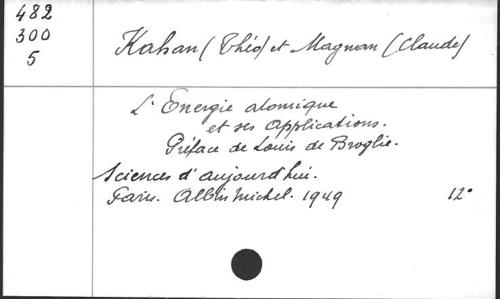 482
300
5
Kahan (Théo) et Magnan (Claude)
L'Energie atomique
et ses applications.
Préface de Louis de Broglie.
Sciences d'aujourd'hui.
Paris. Albin Michel. 1949 12°